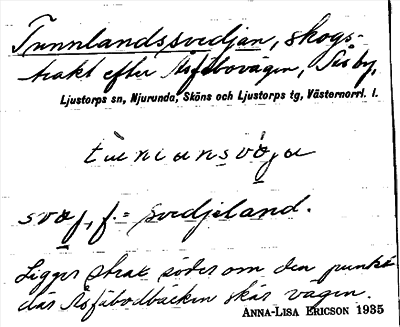 Tunnlandssvedjan, skogs-
trakt efter Åsjäbovägen, Åsby,
Ljustorps sn, Njurunda, Sköns och Ljustorps tg, Västernorrl. l.
svoj, f. = svedjeland.
Ligger strax söder om den punkt
där Åsjäbodbäcken skär vägen.
ANNA-LISA ERICSON 1935